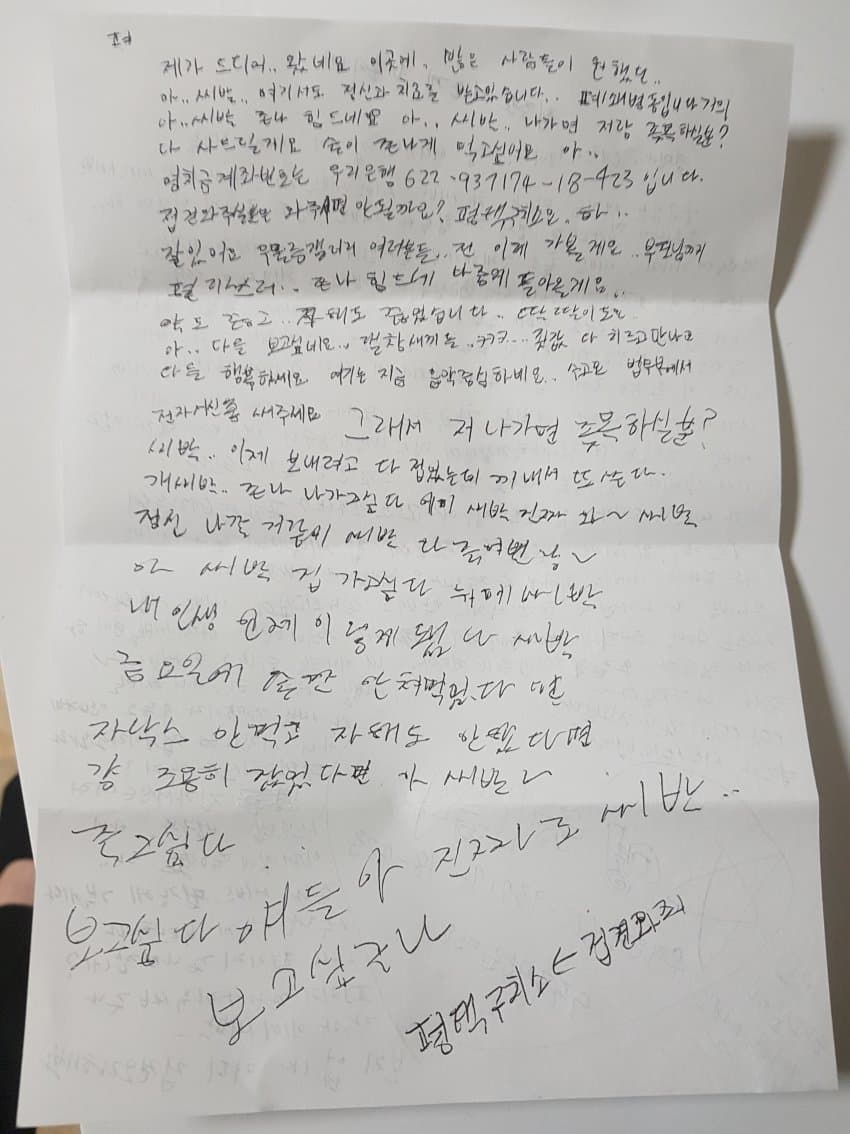 제가 드디어.. 왔네요 이곳에.. 많은 사람들이 원했던..
아.. 씨발.. 여기서도 정신과 치료를 받고있습니다.. 폐쇄병동입니다 거의
아.. 씨박 존나 힘드네요 아.. 씨박.. 나가면 저랑 족목하실분?
다 사드릴게요 술이 존나게 먹고싶어요 아..
영치금계좌번호는 우리은행 622-937174-18-423 입니다.
접견와주실분은 와주시면 안될까요? 평택구치소요. 하..
잘있어요 우울증갤러리 여러분들.. 전 이제 가볼게요.. 부모님까지
존나 힘드네 나중에 돌아올게요..
약도 좋고.. 담배도 좋았습니다.. 딱딱이도요
아.. 다들 보고싶네요.. 갤창새끼들.. ㅋㅋㅋ... 죗값 다 치르고 만나고
다들 행복하세요 여기는 지금 음악중심하네요.. 수고요 법무부에서
전자서신좀 써주세요 그래서 저 나가면 족목하실분?
씨박.. 이제 보내려고 다 접었는데 꺼내서 또 쓴다.
개새박.. 존나 나가고싶다 에미 씨박 진짜 와~ 씨박
정신 나갈 거같애 씨박 다 죽여버려~
아 씨박 집 가고싶다
내 인생 언제 이렇게 됐냐 씨박
금요일에 술만 안쳐먹었다면
자낙스 안먹고 자해도 안했다면
걍 조용히 잤었다면 아 씨박~
죽고싶다
보고싶다 얘들아 진짜로 씨박..
보고싶구나
평택구치소 ← 접견와줘